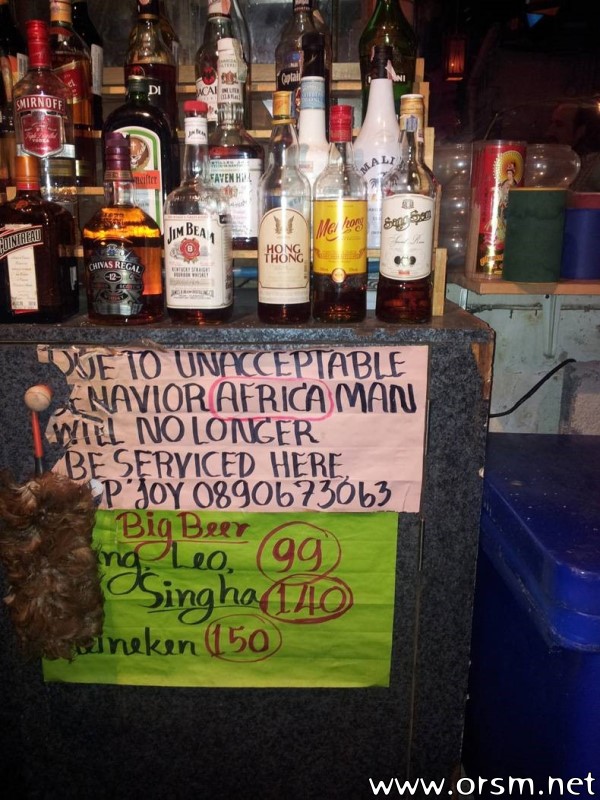 SMIRNOFF
JIM BEAM
KENTUCKY STRAIGHT
BOURBON WHISKEY
CHIVAS REGAL
12
HONG
THONG
Mekhong
SangSom
MALI
DUE TO UNACCEPTABLE
BEHAVIOR AFRICA MAN
WILL NO LONGER
BE SERVICED HERE
P'JOY 0890673063
Big Beer
ng, Leo, 99
Singha 140
eineken 150
www.orsm.net